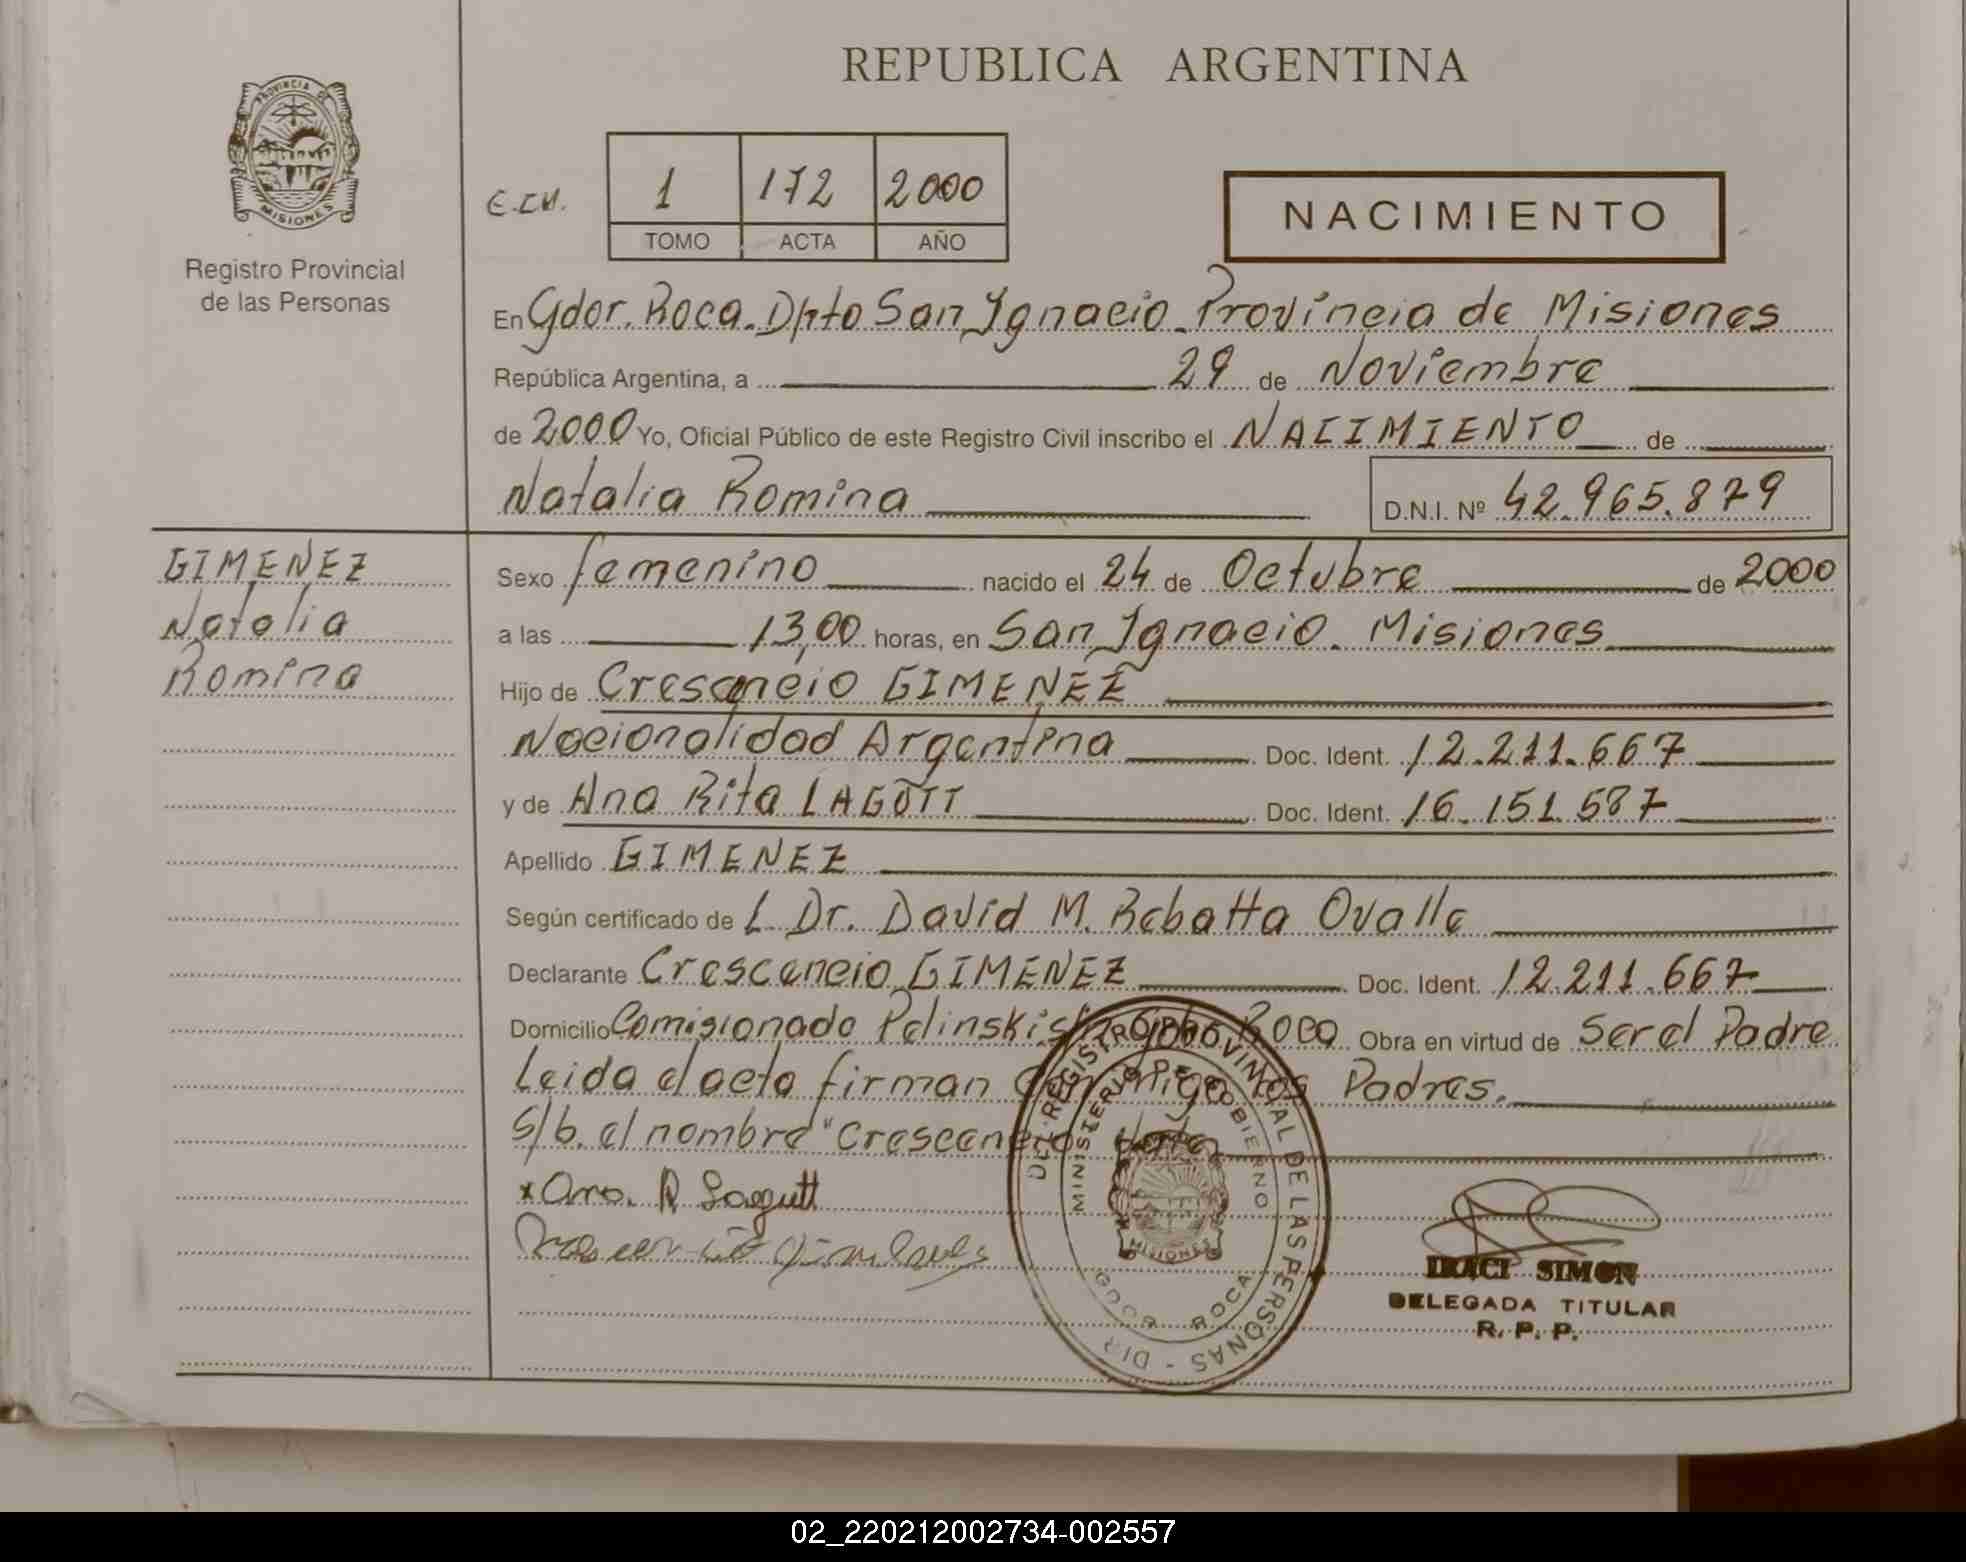 REPUBLICA ARGENTINA
PROVINCIA DE
MISIONES
Registro Provincial
de las Personas
1 172 2000
TOMO ACTA AÑO
NACIMIENTO
En Gdor. Roca. Dpto San Ignacio. Provincia de Misiones
República Argentina, a 29 de Noviembre
de 2000 Yo, Oficial Público de este Registro Civil inscribo el NACIMIENTO de
Natalia Romina D.N.I. Nº 42.965.879
GIMENEZ
Natalia
Romina
Sexo femenino nacido el 24 de Octubre de 2000
a las 13,00 horas, en San Ignacio. Misiones
Hijo de Crescencio GIMENEZ
Nacionalidad Argentina Doc. Ident. 12.211.667
y de Ana Rita LAGOTT Doc. Ident. 16.151.587
Apellido GIMENEZ
Según certificado de L Dr. David M. Rebatta Ovalle
Declarante Crescencio GIMENEZ Doc. Ident. 12.211.667
Domicilio Comisionado Pelinski s/n Gdor Roca Obra en virtud de Ser el Padre
Leida el acta firman conmigo los Padres.
S/b. el nombre "Crescencio" Vale
DIR - DEL REGISTRO PROVINCIAL DE LAS PERSONAS
MINISTERIO DE GOBIERNO
GDOR ROCA
MISIONES
IRACI SIMON
DELEGADA TITULAR
R. P. P.
02_220212002734-002557